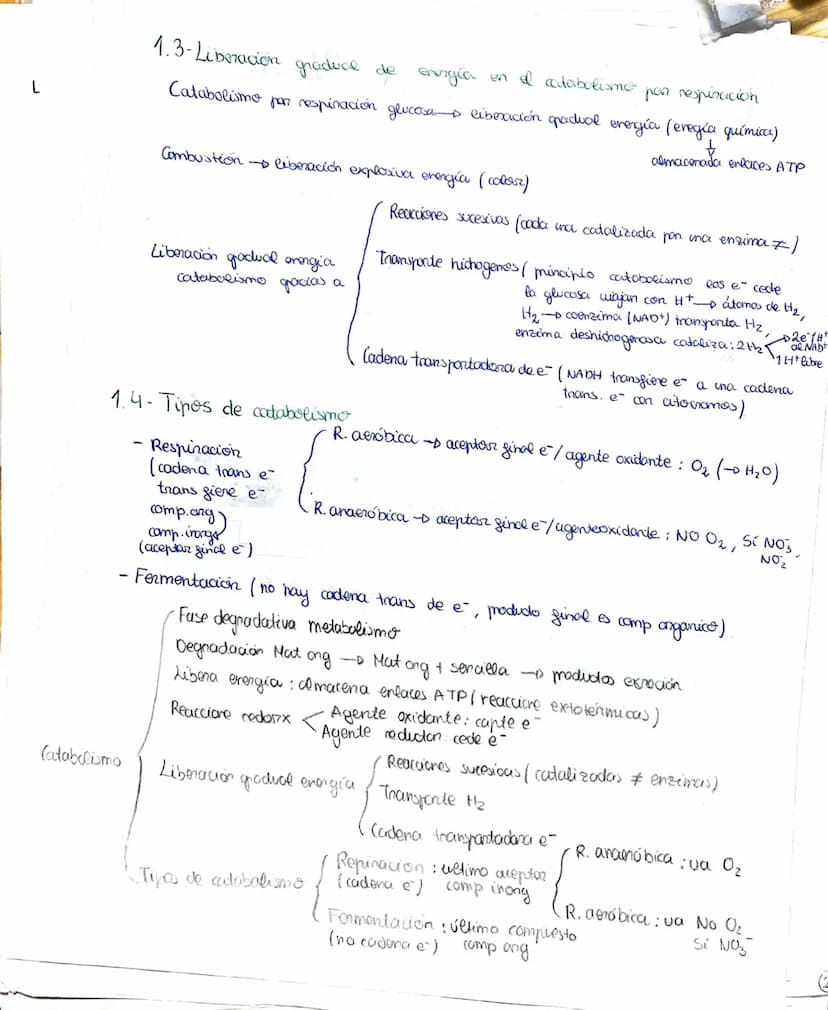 1.3-Liberación gradual de energía en el catabolismo por respiración
L
Catabolismo por respiración glucosa → liberación gradual energía (eregía química)
↓
almacenada enlaces ATP
Combustión → liberación explosiva energía (calor)
Liberación gradual energía
catabolismo gracias a
Reacciones sucesivas (cada una catalizada por una enzima ≠)
Transporte hidrogenos (principio catabolismo los e⁻ cede
la glucosa viajan con H⁺ → átomos de H₂,
H₂ → coenzima (NAD⁺) transporta H₂,
enzima deshidrogenasa cataliza: 2H₂
→ 2e⁻/H⁺
al NAD⁺
1 H⁺ libre
Cadena transportadora de e⁻ (NADH transfiere e⁻ a una cadena
trans. e⁻ con citocromos)
1.4- Tipos de catabolismo
- Respiración
(cadena trans e⁻
transfiere e⁻
comp.org)
comp.inorg
(aceptor final e⁻)
R. aeróbica → aceptor final e⁻/agente oxidante: O₂ (→ H₂O)
R. anaeróbica → aceptor final e⁻/agente oxidante: NO O₂, Sí NO₃⁻,
NO₂⁻
- Fermentación (no hay cadena trans de e⁻, producto final es comp organico)
Catabolismo
Fase degradativa metabolismo
Degradación Mat org → Mat org + sencilla → productos excreción
Libera energía: almacena enlaces ATP (reaccione exotérmicas)
Reaccione redox
Agente oxidante: capte e⁻
Agente reductor: cede e⁻
Liberación gradual energía
Reacciones sucesicas (catalizadas ≠ enzimas)
Transporte H₂
Cadena transportadora e⁻
Tipos de catabolismo
Repiración: último aceptor
(cadena e⁻) comp inorg
R. anaeróbica: ua O₂
R. aeróbica: ua No O₂
Sí NO₃⁻
Fermentación: último compuesto
(no cadena e⁻) comp org
(2